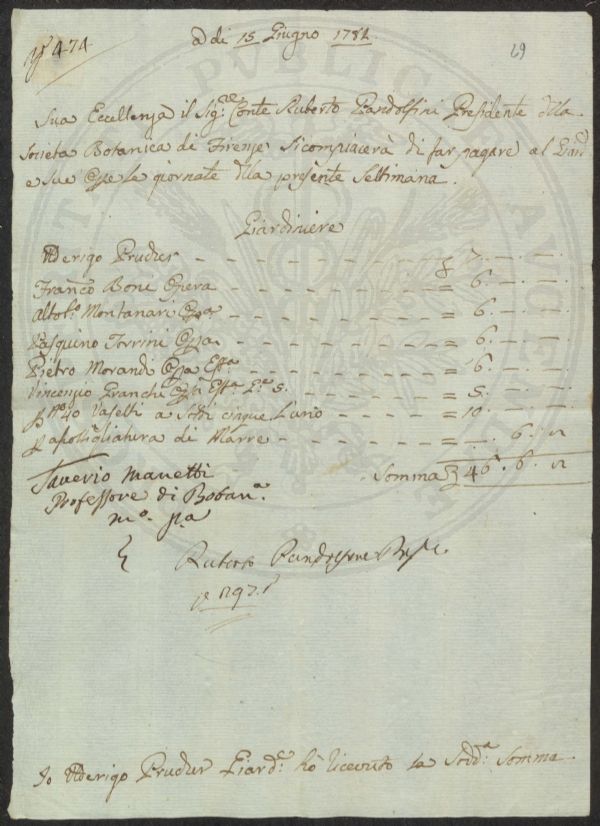 N° 474
A di 15 Giugno 1782.
69
Sua Eccellenza il Sig:re Conte Ruberto Pandolfini Presidente dlla
Societa Botanica di Firenze si compiacerà di far pagare al Giard:
e sue Opre le giornate dlla presente Settimana.
Giardiniere
Uderigo Prucker - - - - - - - - £ 7. — —
Franco Boni Opera - - - - - - - = 6. — —
Altob:o Montanari Opra - - - - - - - = 6. — —
Pasquino Torrini Opra - - - - - - = 6. — —
Pietro Morandi Opra Est:a - - - - - - = 6. — —
Vincenzio Franchi Est:a = 5. — —
p N:o 40 Vaselli a Soldi cinque l'uno - - - - = 10. — —
p di Marre - - - - - - = — . 6. 8
Somma £ 46. 6. 8
Saverio Manetti
Professore di Botan:a
m:o p:a
Ruberto Pandolfini Presi.
Io Uderigo Prucker Giard:e hò riceuto la Sodd:a Somma
PUBLIC